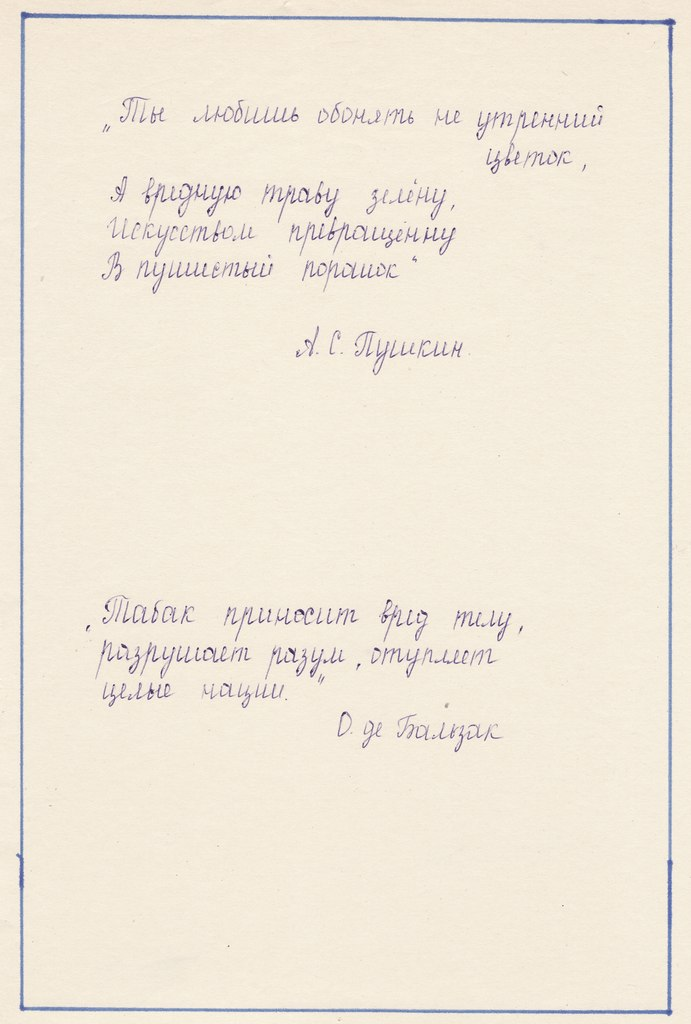 „Ты любишь обонять не утренний
цветок,
А вредную траву зелёну,
Искусством превращённу
В пушистый порошок“
А. С. Пушкин.
„Табак приносит вред телу,
разрушает разум, отупляет
целые нации.“
О. де Бальзак